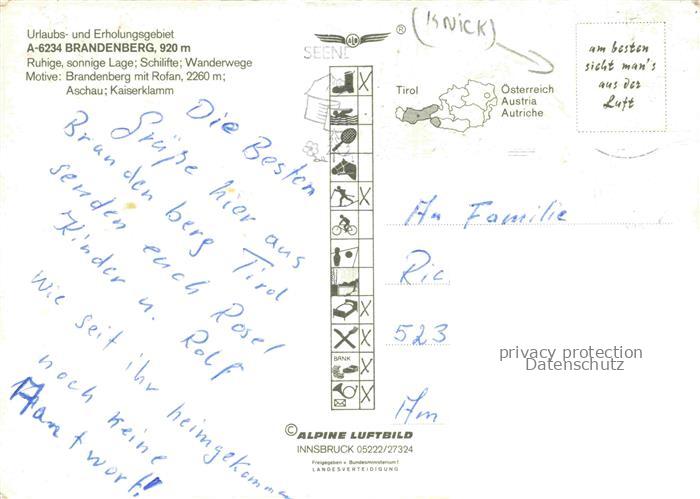 Urlaubs- und Erholungsgebiet
A-6234 BRANDENBERG, 920 m
Ruhige, sonnige Lage; Schilifte; Wanderwege
Motive: Brandenberg mit Rofan, 2260 m;
Aschau; Kaiserklamm
Die Besten
Grüße hier aus
Branden berg Tirol
senden euch Rosel
Kinder u. Rolf
Wie seit ihr heimgekommen
noch keine
Hantwort!
ALB
®
SEENE
BANK
X
X
X
X
X
X
© ALPINE LUFTBILD
INNSBRUCK 05222/27324
Freigegeben v. Bundesministerium f.
LANDESVERTEIDIGUNG
(KNICK)
Tirol
Österreich
Austria
Autriche
am besten
sieht man's
aus der
Luft
An Familie
Ric
523
Am
privacy protection
Datenschutz